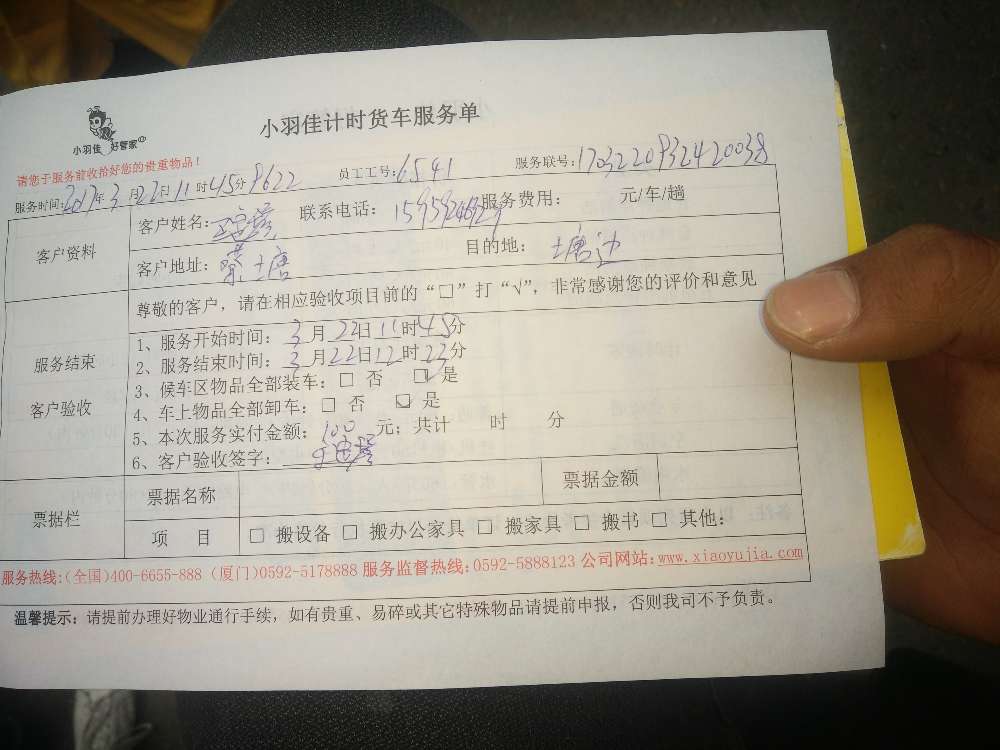 小羽佳 好管家
小羽佳计时货车服务单
请您于服务前收拾好您的贵重物品！
服务时间:2017年3月22日11时45分 8622 员工工号:6541 服务联号:
客户资料
客户姓名: 联系电话: 服务费用: 元/车/趟
客户地址:蔡塘 目的地: 塘边
服务结束
客户验收
尊敬的客户，请在相应验收项目前的“□”打“√”，非常感谢您的评价和意见
1、服务开始时间: 3月22日11时45分
2、服务结束时间: 3月22日12时23分
3、候车区物品全部装车: □ 否 ☑ 是
4、车上物品全部卸车: □ 否 □ 是
5、本次服务实付金额: 100 元; 共计 时 分
6、客户验收签字:
票据栏
票据名称 票据金额
项 目 □ 搬设备 □ 搬办公家具 □ 搬家具 □ 搬书 □ 其他:
服务热线:(全国)400-6655-888 (厦门)0592-5178888 服务监督热线:0592-5888123 公司网站:www.xiaoyujia.com
温馨提示: 请提前办理好物业通行手续，如有贵重、易碎或其它特殊物品请提前申报，否则我司不予负责。